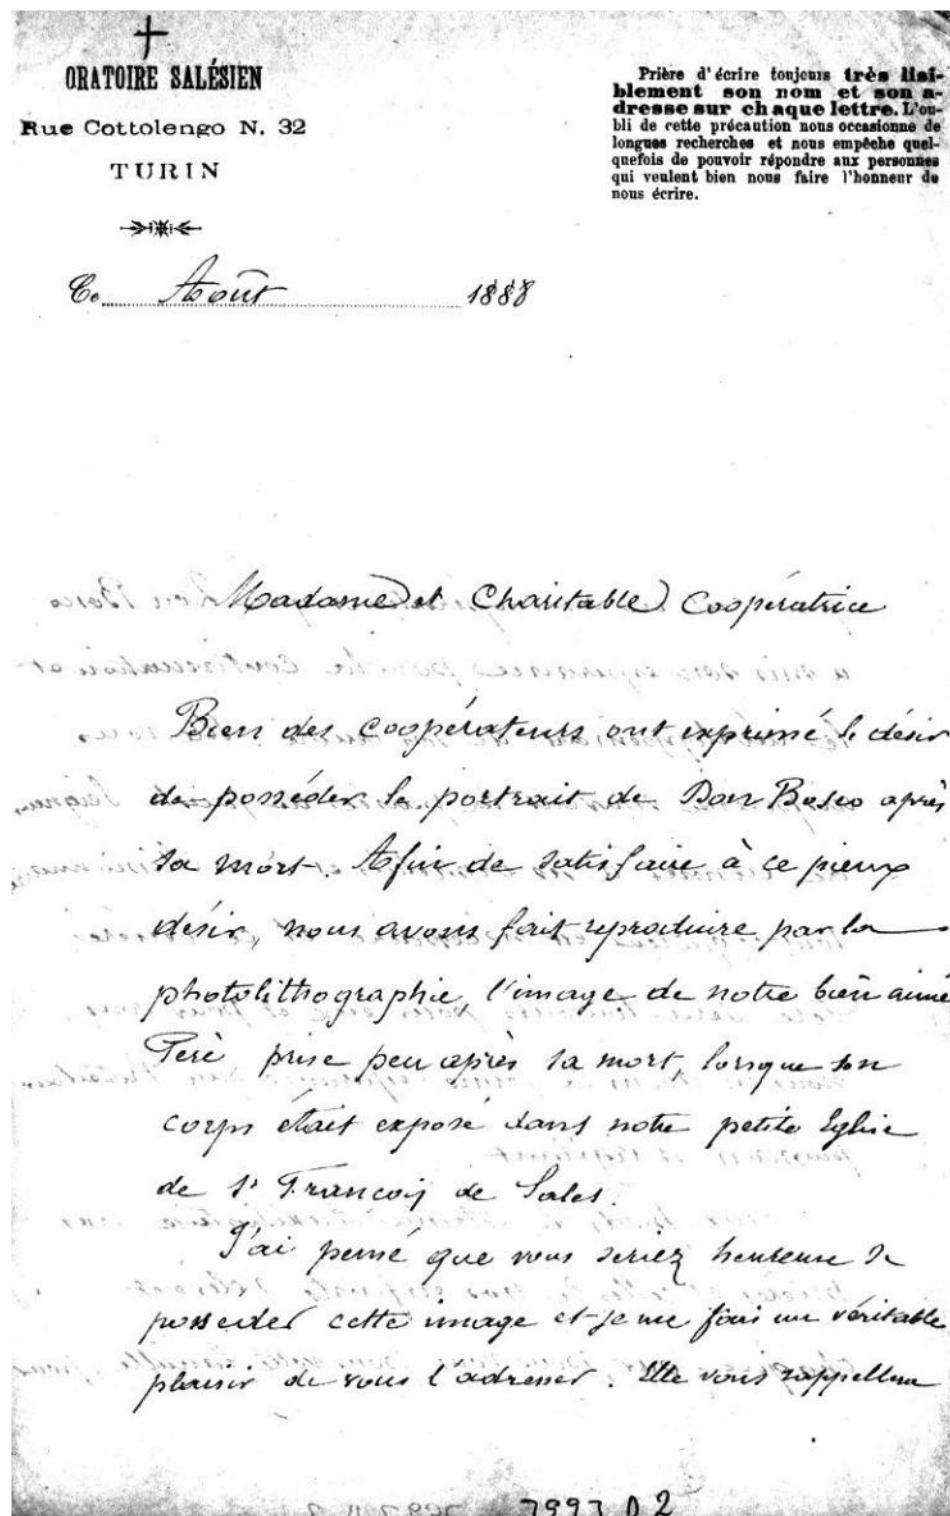 ORATOIRE SALÉSIEN
Rue Cottolengo N. 32
TURIN
Prière d'écrire toujours très lisi-
blement son nom et son a-
dresse sur chaque lettre. L'ou-
bli de cette précaution nous occasionne de
longues recherches et nous empêche quel-
quefois de pouvoir répondre aux personnes
qui veulent bien nous faire l'honneur de
nous écrire.
Ce Août 1888
Madame et Charitable Coopératrice
Bien des coopérateurs ont exprimé le désir
de posséder le portrait de Don Bosco après
sa mort. Afin de satisfaire à ce pieux
désir, nous avons fait reproduire par la
photolithographie, l'image de notre bien aimé
Père prise peu après sa mort, lorsque son
corps était exposé dans notre petite Eglise
de St François de Sales.
J'ai pensé que vous seriez heureuse de
posseder cette image et je me fais un véritable
plaisir de vous l'adresser. Elle vous rappellera
7997 D 2